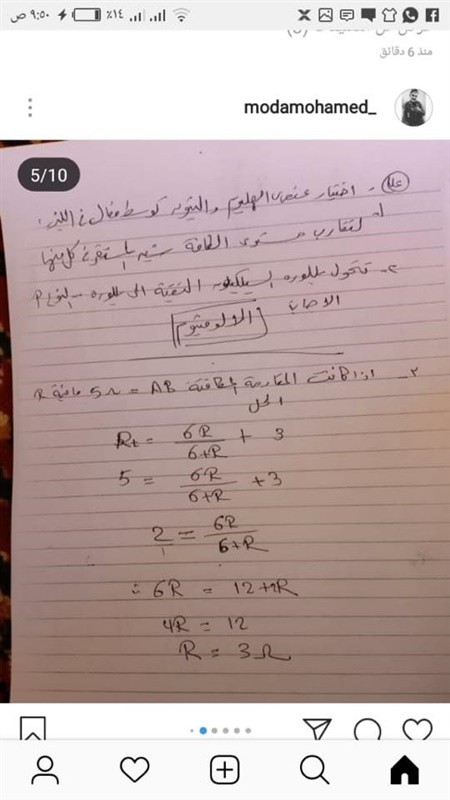 ٩:٥٠ ص
٪١٤
منذ 6 دقائق
modamohamed_
5/10
علل
١- اختيار عنصر الهليوم والنيون كوسط فعال في الليزر
لتقارب مستوى الطاقة شبه المستقرة في كل منها
٢- تتحول بلورة السيليكون النقية الى بلورة - النوع P
الألومنيوم
٢- اذا كانت المقاومة المكافئة AB = 5Ω R
الحل
Rt = 6R/6+R + 3
5 = 6R/6+R + 3
2/1 = 6R/6+R
∴ 6R = 12+2R
4R = 12
R = 3Ω